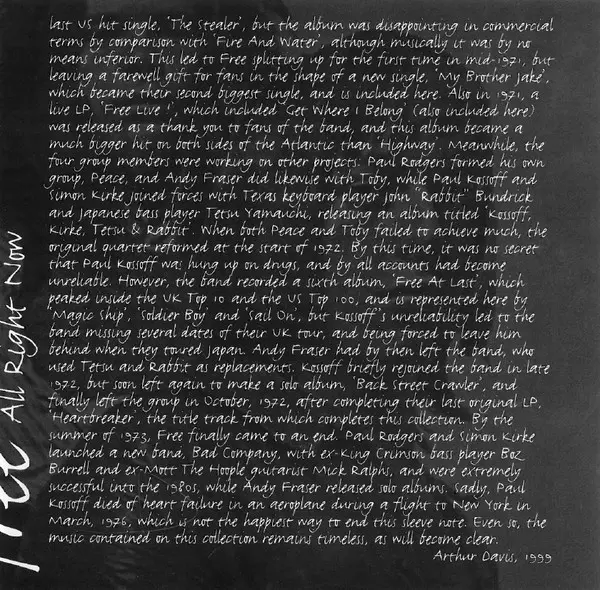 last US hit single, 'The Stealer', but the album was disappointing in commercial
terms by comparison with 'Fire And Water', although musically it was by no
means inferior. This led to Free splitting up for the first time in mid-1971, but
leaving a farewell gift for fans in the shape of a new single, 'My Brother Jake',
which became their second biggest single, and is included here. Also in 1971, a
live LP, 'Free Live!', which included 'Get Where I Belong' (also included here)
was released as a thank you to fans of the band, and this album became a
much bigger hit on both sides of the Atlantic than 'Highway'. Meanwhile, the
four group members were working on other projects: Paul Rodgers formed his own
group, Peace, and Andy Fraser did likewise with Toby, while Paul Kossoff and
Simon Kirke joined forces with Texas keyboard player John "Rabbit" Bundrick
and Japanese bass player Tetsu Yamauchi, releasing an album titled 'Kossoff,
Kirke, Tetsu & Rabbit'. When both Peace and Toby failed to achieve much, the
original quartet reformed at the start of 1972. By this time, it was no secret
that Paul Kossoff was hung up on drugs, and by all accounts had become
unreliable. However, the band recorded a sixth album, 'Free At Last', which
peaked inside the UK Top 10 and the US Top 100, and is represented here by
'Magic Ship', 'Soldier Boy' and 'Sail On', but Kossoff's unreliability led to the
band missing several dates of their UK tour, and being forced to leave him
behind when they toured Japan. Andy Fraser had by then left the band, who
used Tetsu and Rabbit as replacements. Kossoff briefly rejoined the band in late
1972, but soon left again to make a solo album, 'Back Street Crawler', and
finally left the group in October, 1972, after completing their last original LP,
'Heartbreaker', the title track from which completes this collection. By the
summer of 1973, Free finally came to an end. Paul Rodgers and Simon Kirke
launched a new band, Bad Company, with ex-King Crimson bass player Boz
Burrell and ex-Mott The Hoople guitarist Mick Ralphs, and were extremely
successful into the 1980s, while Andy Fraser released solo albums. Sadly, Paul
Kossoff died of heart failure in an aeroplane during a flight to New York in
March, 1976, which is not the happiest way to end this sleeve note. Even so, the
music contained on this collection remains timeless, as will become clear.
Arthur Davis, 1999
Free All Right Now